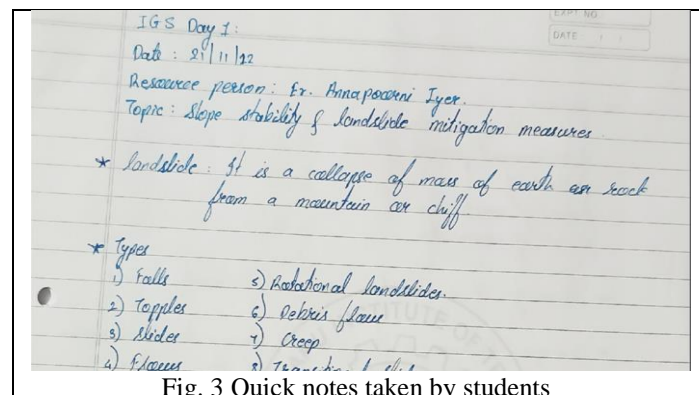 EXPT NO.
DATE
IGS Day 1:
Date : 21/11/22
Resource person: Er. Annapoorni Iyer.
Topic : Slope stability & landslide mitigation measures
* landslide : It is a collapse of mass of earth or rock
from a mountain or cliff.
* Types
1) Falls 5) Rotational landslides.
2) Topples 6) Debris flow
3) Slides 7) Creep
4) Flows 8)
INSTITUTE OF
Fig. 3 Quick notes taken by students